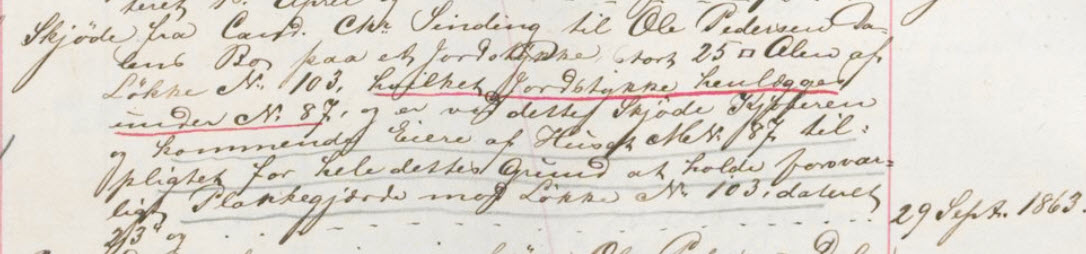 teret 18. April og
Skjöde fra Cand. Chr. Sinding til Ole Pedersen Da-
lens Bo, paa et Jordstykke, stort 25 □ Alen af
Løkke No. 103, hvilket Jordstykke henlægges
under No. 87, og er ved dette Skjöde Kjøberen
og kommende Eiere af Huset M.No. 87 til-
pligtet for hele dettes Grund at holde forsvar-
ligt Plankegjærde mod Løkke No. 103, dateret
23 og
29 Sept. 1863.
Ole Pedersen